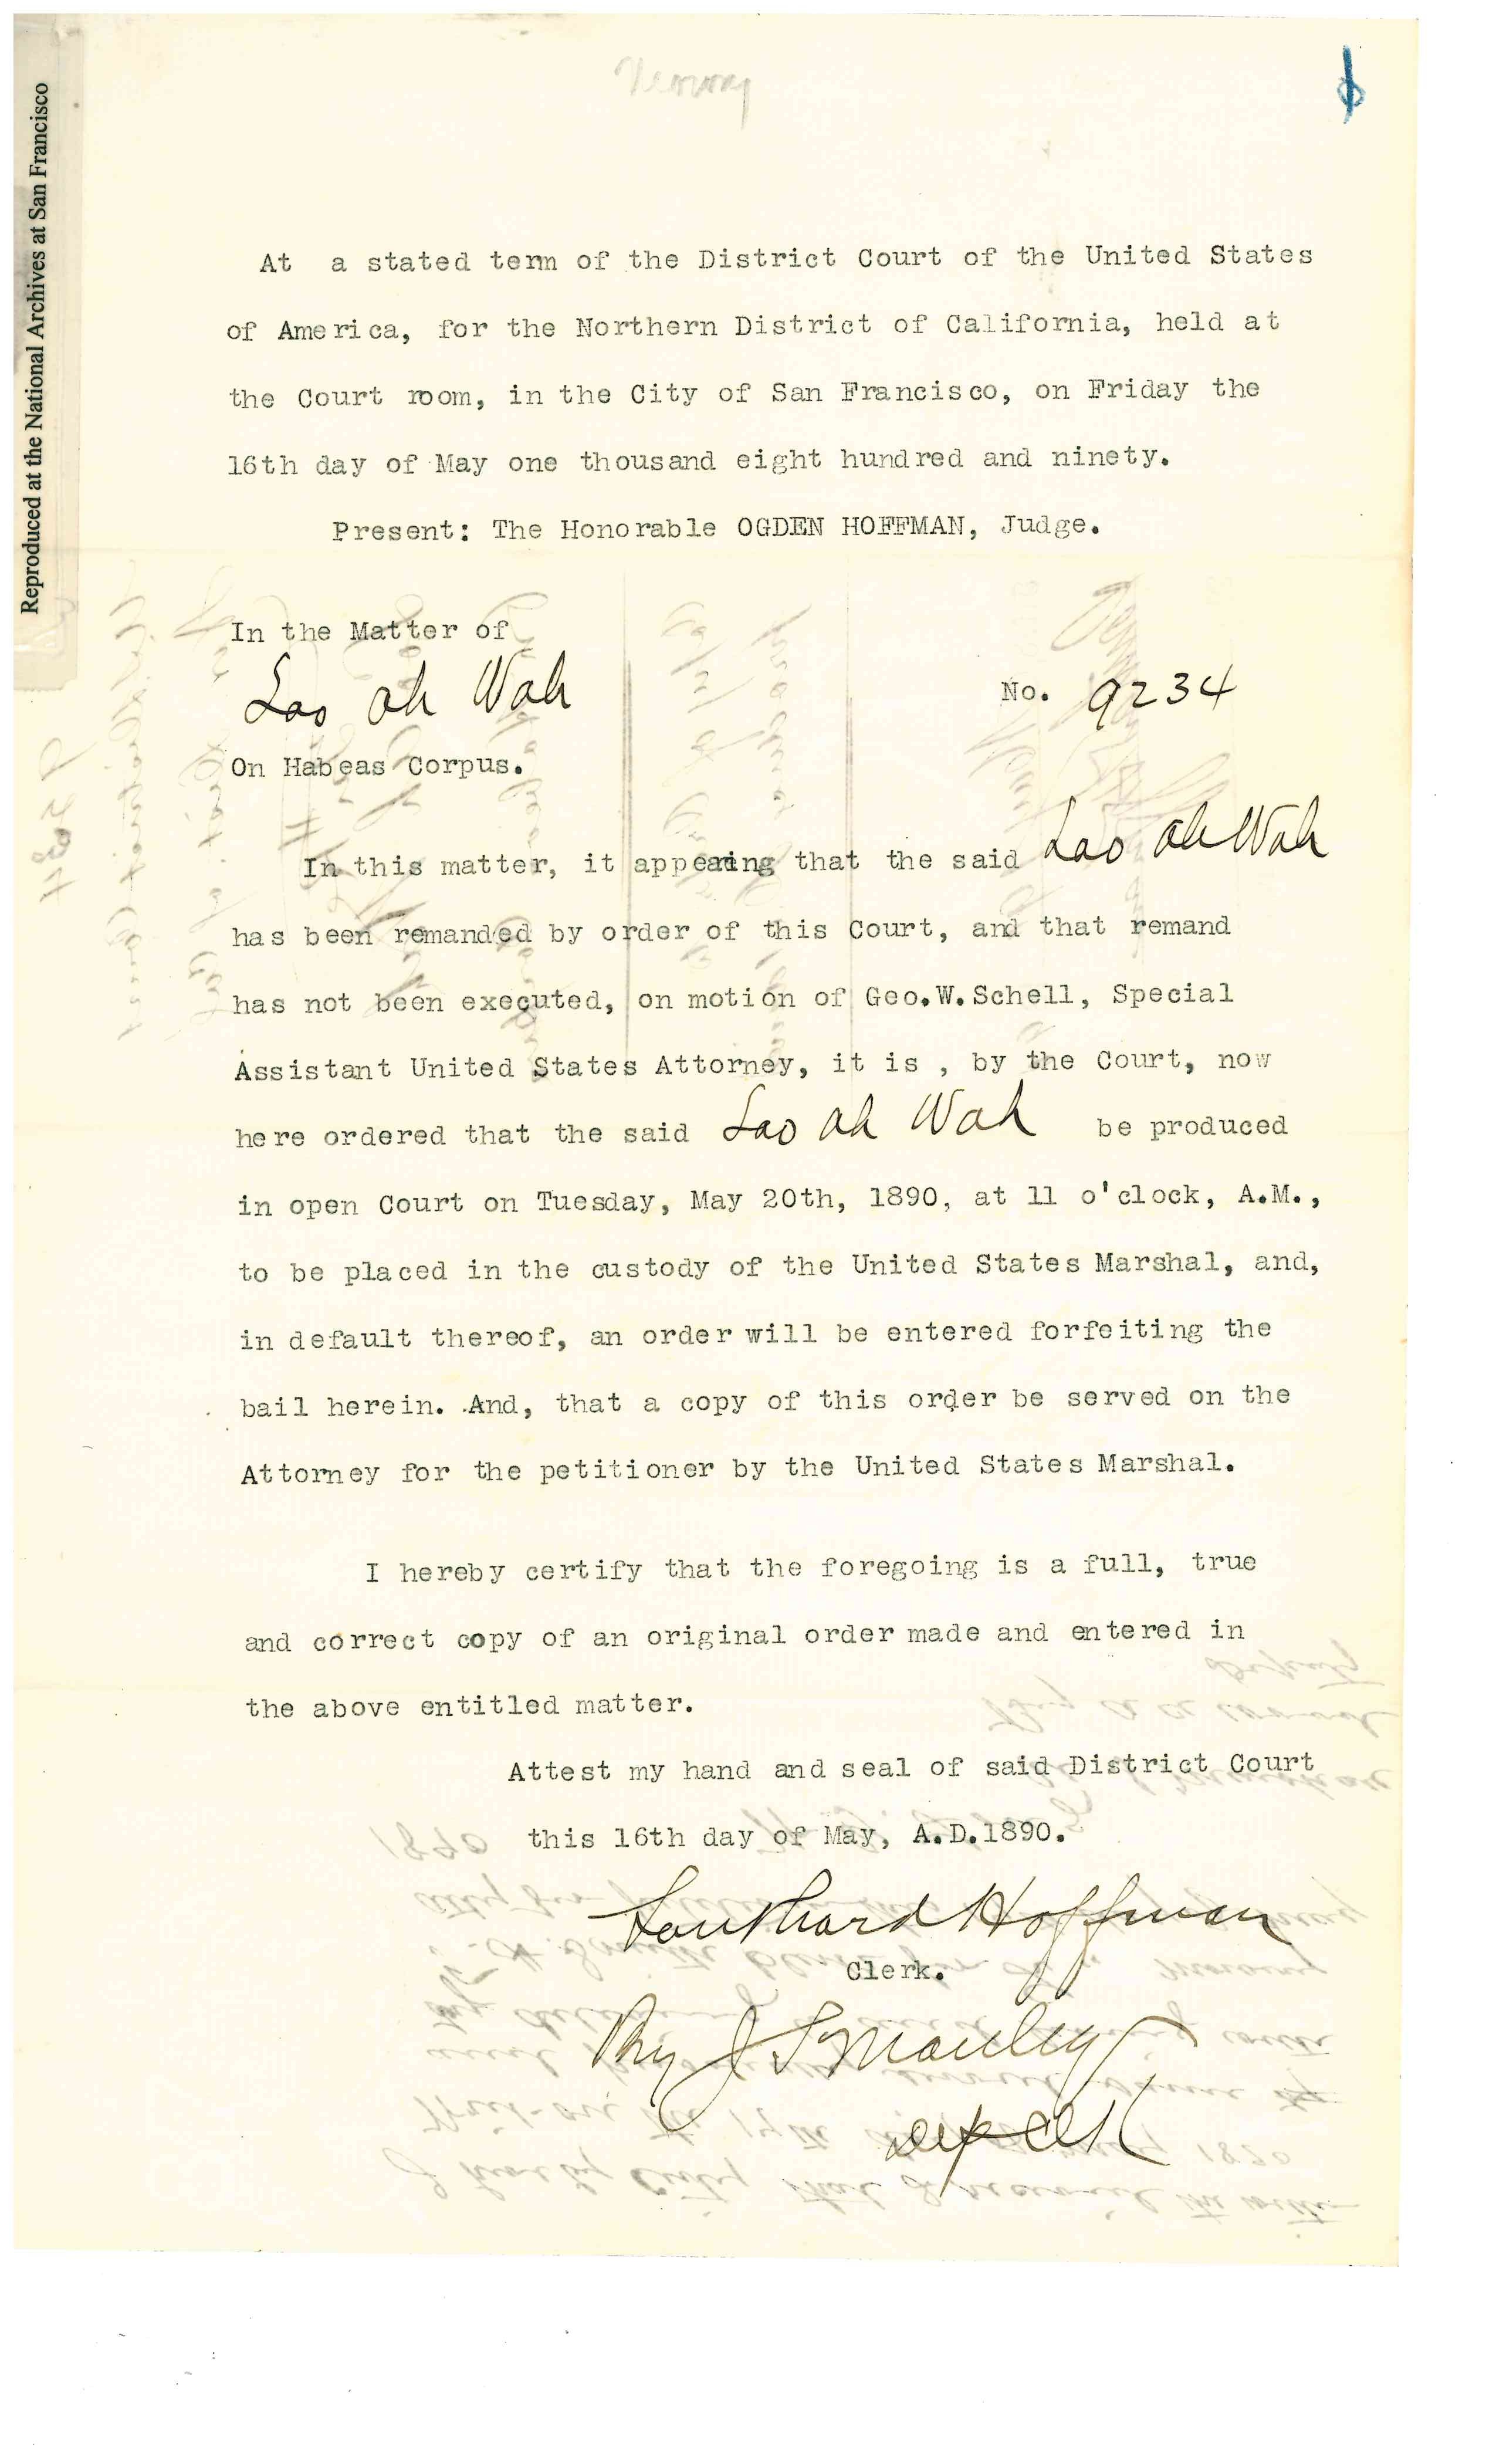 Reproduced at the National Archives at San Francisco
At a stated term of the District Court of the United States
of America, for the Northern District of California, held at
the Court room, in the City of San Francisco, on Friday the
16th day of May one thousand eight hundred and ninety.
Present: The Honorable OGDEN HOFFMAN, Judge.
In the Matter of
Lao Ah Wah
No. 9234
On Habeas Corpus.
In this matter, it appearing that the said Lao Ah Wah
has been remanded by order of this Court, and that remand
has not been executed, on motion of Geo.W.Schell, Special
Assistant United States Attorney, it is , by the Court, now
here ordered that the said Lao Ah Wah be produced
in open Court on Tuesday, May 20th, 1890, at 11 o'clock, A.M.,
to be placed in the custody of the United States Marshal, and,
in default thereof, an order will be entered forfeiting the
bail herein. And, that a copy of this order be served on the
Attorney for the petitioner by the United States Marshal.
I hereby certify that the foregoing is a full, true
and correct copy of an original order made and entered in
the above entitled matter.
Attest my hand and seal of said District Court
this 16th day of May, A.D.1890.
Southard Hoffman
Clerk.
By J S Manley
Dep Clk